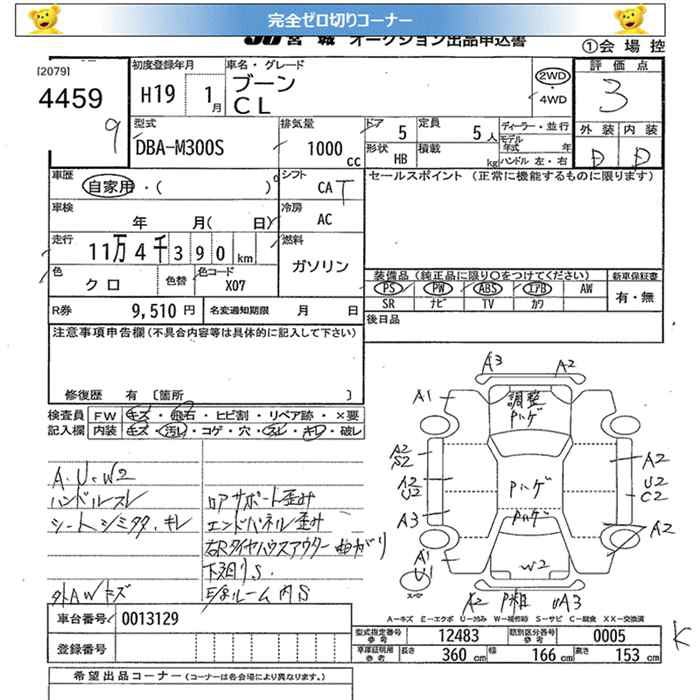 完全ゼロ切りコーナー
JU宮城 オークション出品申込書
①会場控
[2079]
4459
9
初度登録年月
H19 1月
車名・グレード
ブーン
CL
2WD
・4WD
評価点
3
外装 内装
D D
型式
DBA-M300S
排気量
1000 cc
ドア 5
形状 HB
定員 5人
積載 kg
ディーラー・並行
モデル年式 年
ハンドル 左・右
車歴
自家用・( )
シフト
CAT
セールスポイント (正常に機能するものに限ります)
車検
年 月( 日)
冷房
AC
走行
11万4千390km
燃料
ガソリン
色
クロ
色替
色コード
X07
装備品(純正品に限り○をつけてください)
新車保証書
PS PW ABS エアB AW
SR ナビ TV カワ
有・無
R券 9,510円
名変通知期限 月 日
後日品
注意事項申告欄(不具合内容等は具体的に記入して下さい)
修復歴 有 [箇所 ]
検査員
記入欄
FW キズ・飛石・ヒビ割・リペア跡・×要
内装 キズ・汚レ・コゲ・穴・スレ・キレ・破レ
A・U・W2
ハンドルスレ
シートシミ キレ
外AWキズ
コアサポート歪み
エンドパネル歪み
右Rタイヤハウスアウター曲がり
下廻りS
ルーム内S
A3 A2
A1
調整
Pハゲ
A2
S2
A2
U2
A3
Pハゲ
Pハゲ
A2
U2
C2
A2
A1
U1
W2
A2 P粗 UA3
A-キズ E-エクボ U-凹み W-補修跡 S-サビ C-腐食 XX-交換済
車台番号 0013129
登録番号
型式指定番号
参考
12483
類別区分番号
参考
0005
車庫証明用
参考
長さ 360 cm 幅 166 cm 高さ 153 cm
K
希望出品コーナー(コーナーは各会場により異なります。)